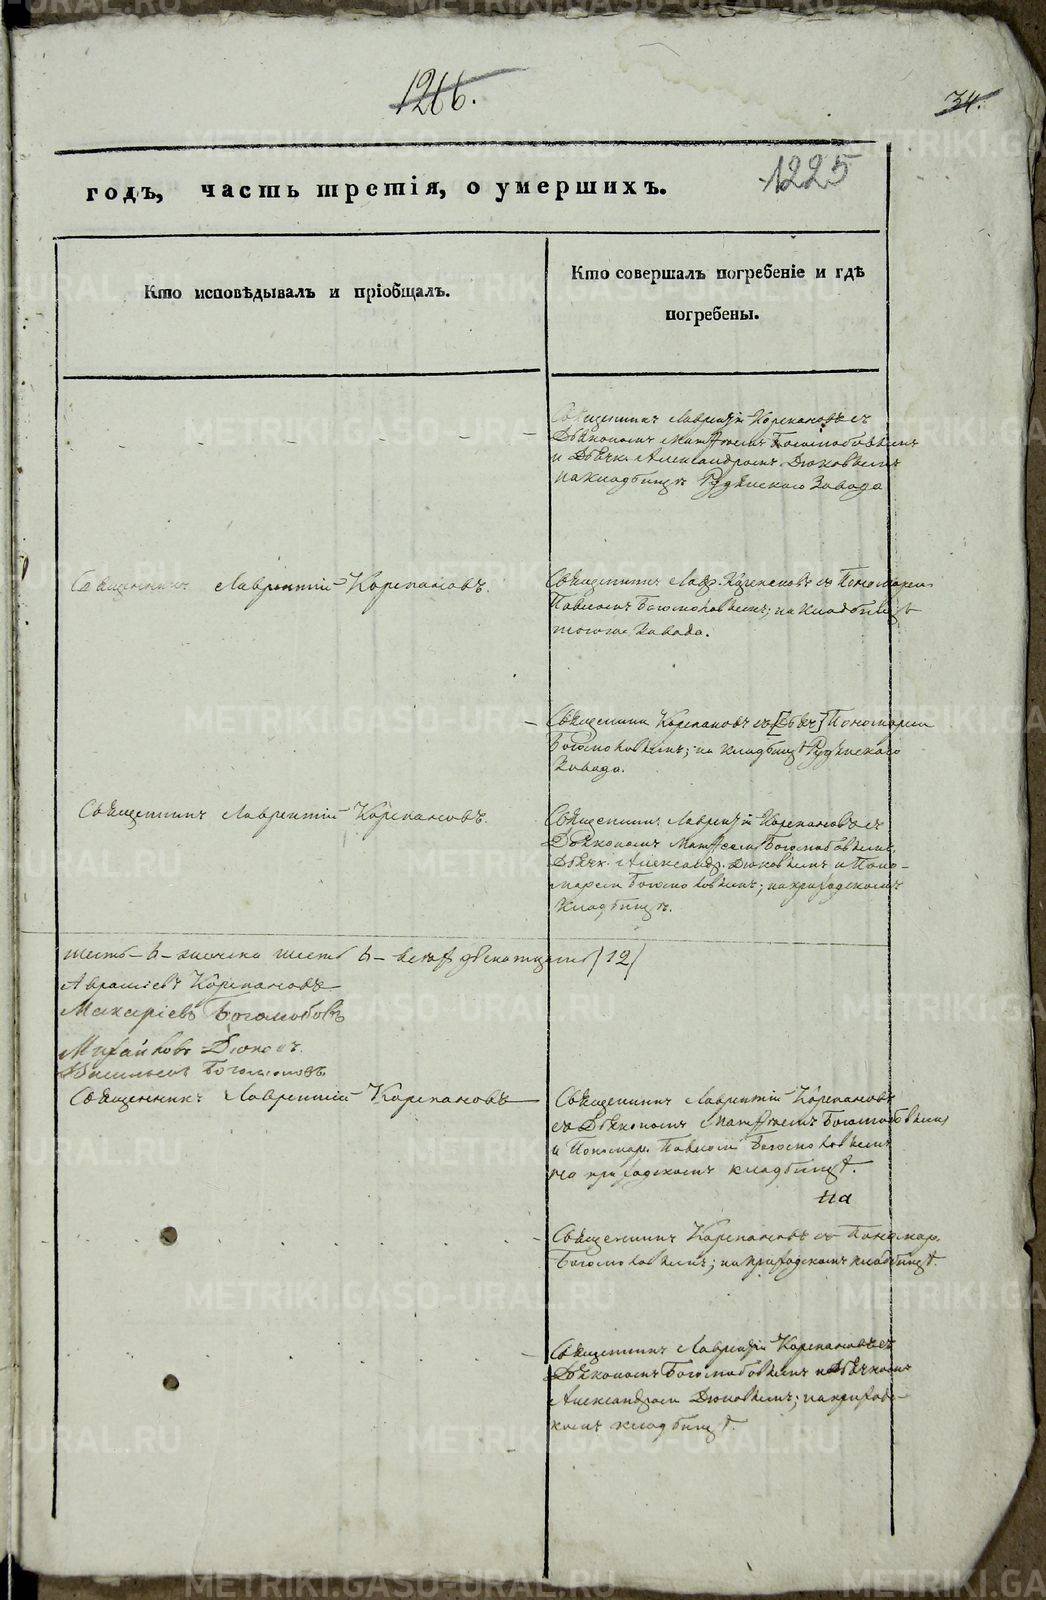 1266.
34.
1225
годъ, часть третія, о умершихъ.
Кто исповѣдывалъ и пріобщалъ.
Кто совершалъ погребеніе и гдѣ
погребены.
Священникъ Лаврентій Корепановъ съ
Діакономъ Матѳеемъ Боголюбовымъ
и Дьячк. Александромъ Дюковымъ
на кладбищѣ Рудянскаго Завода
Священникъ Лаврентій Корепановъ.
Священникъ Лавр. Корепановъ съ Пономаремъ
Павломъ Богомоловымъ; на кладбищѣ
тогоже Завода.
Священникъ Корепановъ съ Пономаремъ
Богомоловымъ; на кладбищѣ Рудянскаго
Завода.
Священникъ Лаврентій Корепановъ.
Священникъ Лаврентій Корепановъ съ
Діакономъ Матѳеемъ Боголюбовымъ,
Дьячк. Александр. Дюковымъ и Поно-
маремъ Богомоловымъ; на приходскомъ
кладбищѣ.
шесть - 6 - женска шесть 6 - всѣхъ двенатцать (12)
Корепановъ
Макаріевъ Боголюбовъ
Михайловъ Дюковъ.
Васильевъ Богомоловъ
Священникъ Лаврентій Корепановъ
Священникъ Лаврентій Корепановъ
съ Діакономъ Матѳеемъ Боголюбовымъ
и Пономар. Павломъ Богомоловымъ
на приходскомъ кладбищѣ.
на
Священникъ Корепановъ съ Пономар.
Богомоловымъ; на приходскомъ кладбищѣ.
Священникъ Лаврентій Корепановъ съ
Діакономъ Боголюбовымъ и Дьячкомъ
Александромъ Дюковымъ; на приход-
скомъ кладбищѣ.
METRIKI.GASO-URAL.RU